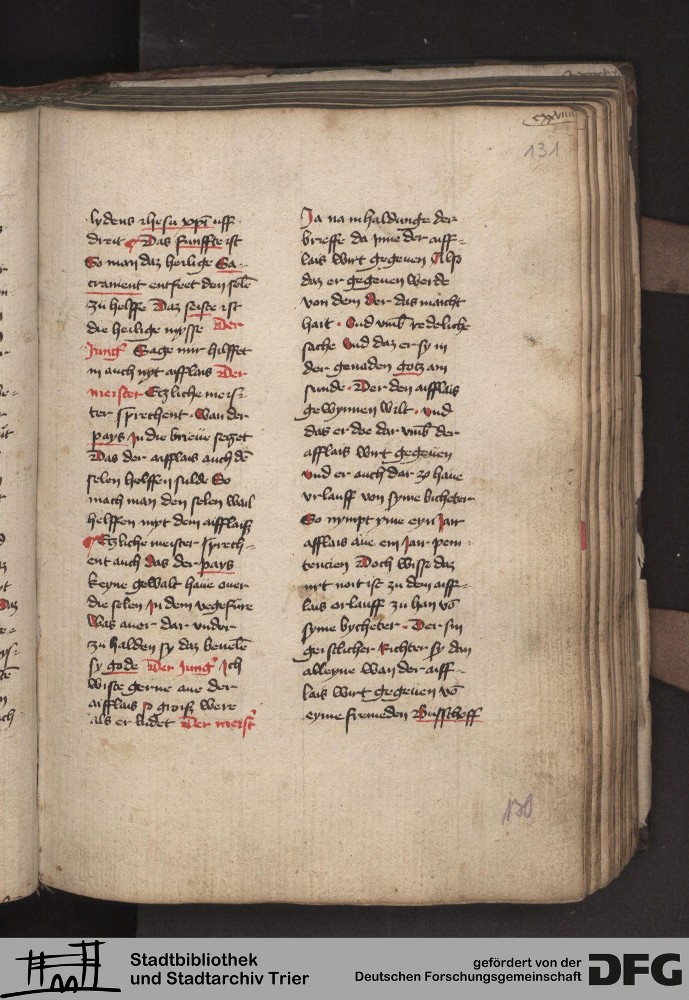 cxxviii
131
lydens ihesu xpi uff
dreit Das funffte ist
So man daz heilige Sa-
crament entfeet den selē
zu helffe Daz seiste ist
die heilige mysse Der
Jung' Sage mir hilffet
in auch nyt afflais Der
meister Etzliche meis-
ter sprechent. Wan der
pays in die brieue setzet
Das der aifflais auch dē
selen helffen sulde So
mach man den selen wail
helffen myt dem aifflaiß
Etzliche meister sprech-
ent auch das der pays
keyne gewalt haue ouer
die selen in dem vegefure
Was auer dar vndor
zu halden sy daz beuele
sy gode Der Jung' Ich
wiste gerne aue der
aifflais so groiß were
als er ludet Der meist'
Ja na inhaldunge der
brieffe da inne der aiff-
lais wirt gegeuen Also
daz er gegeuen werde
von dem der das maicht
hait. Vnd vmb redeliche
sache Vnd daz er sy in
der genaden gotz am
sunde. Der den aifflais
gewynnen wilt. vnd
das er doe dar vmb der
afflais wirt gegeuen
vnd er auch dar zo haue
vrlauff von syme bichter
So nympt yme eyn Jair
afflais aue ein Jair peni-
tencien Doch wisse daz
nit noit ist zu dem aiff-
lais orlauff zu han vō
syme bychter. Der sin
geistlicher Richter sy dan
alleyne wan der aiff-
lais wirt gegeuen vō
eyme fremeden Busschoff
130
Stadtbibliothek
und Stadtarchiv Trier
gefördert von der
Deutschen Forschungsgemeinschaft
DFG